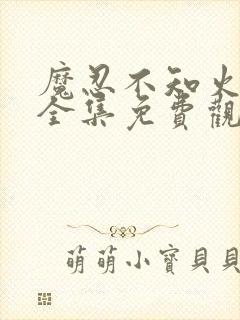 魔忍不知火
全集免費觀
萌萌小寶貝貝